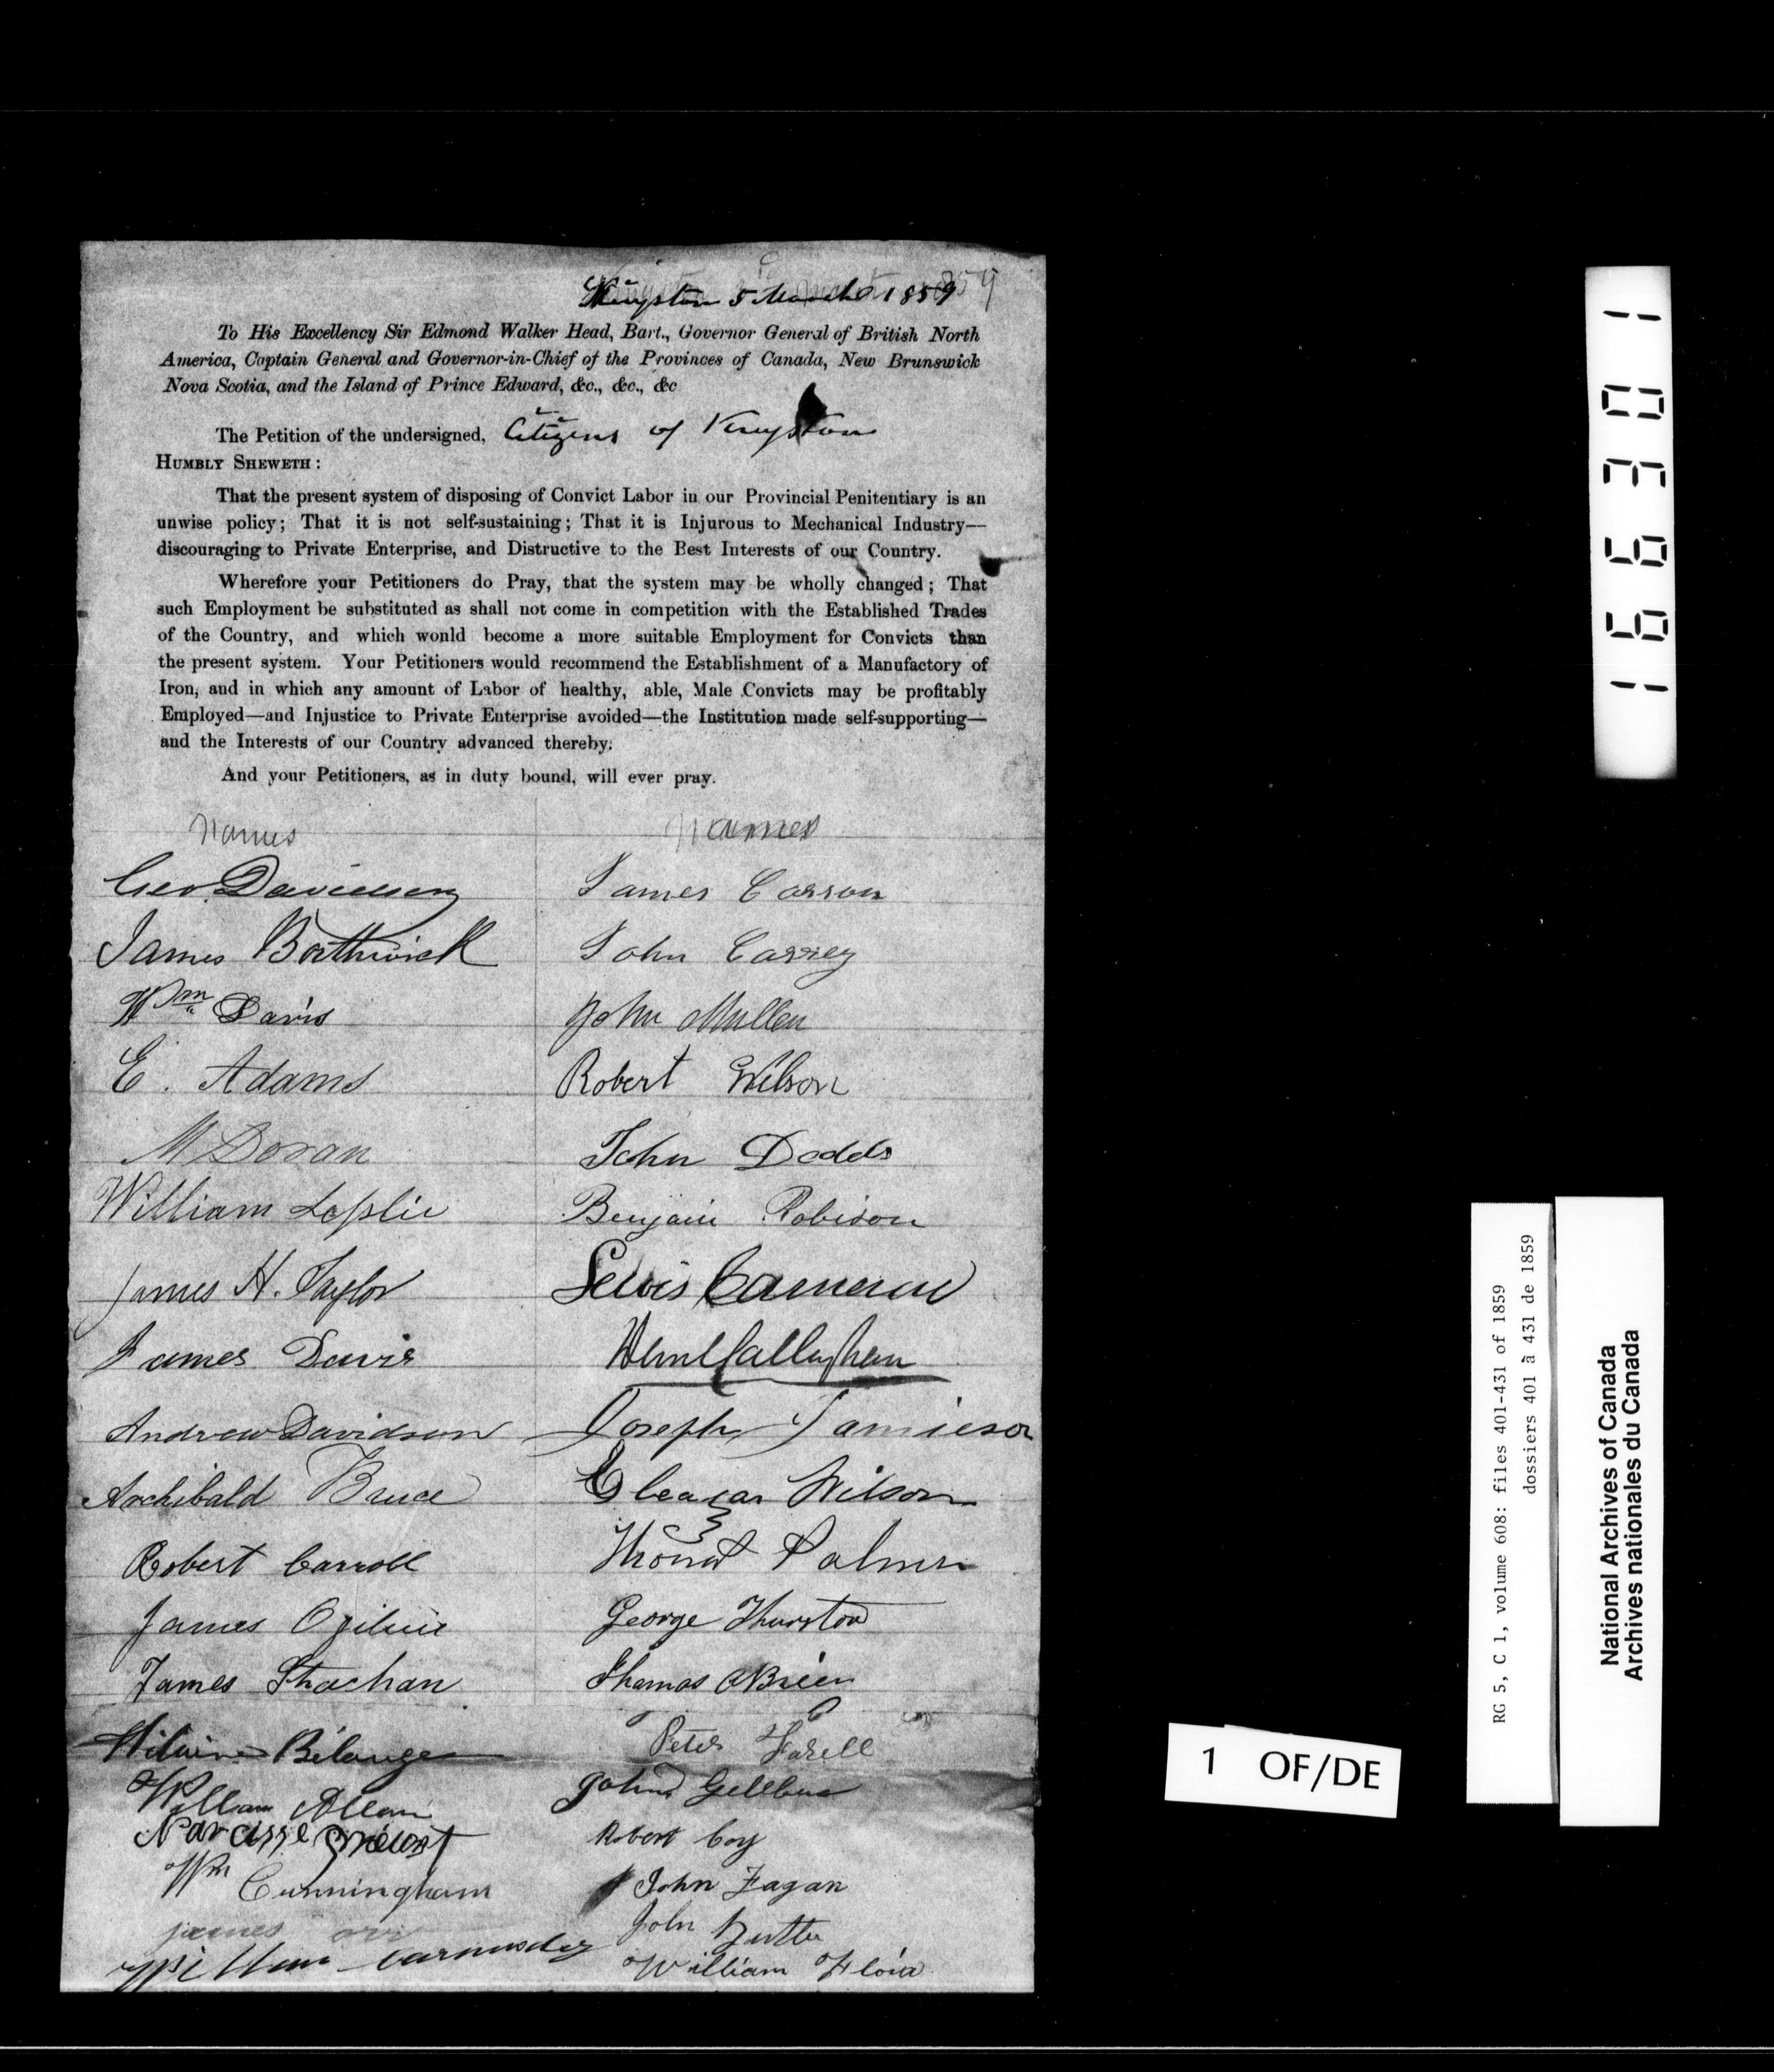 Kingston 5 March 1859
To His Excellency Sir Edmond Walker Head, Bart., Governor General of British North
America, Captain General and Governor-in-Chief of the Provinces of Canada, New Brunswick
Nova Scotia, and the Island of Prince Edward, &c., &c., &c
The Petition of the undersigned, Citizens of Kingston
HUMBLY SHEWETH :
That the present system of disposing of Convict Labor in our Provincial Penitentiary is an
unwise policy; That it is not self-sustaining; That it is Injurous to Mechanical Industry—
discouraging to Private Enterprise, and Distructive to the Best Interests of our Country.
Wherefore your Petitioners do Pray, that the system may be wholly changed; That
such Employment be substituted as shall not come in competition with the Established Trades
of the Country, and which wonld become a more suitable Employment for Convicts than
the present system. Your Petitioners would recommend the Establishment of a Manufactory of
Iron, and in which any amount of Labor of healthy, able, Male Convicts may be profitably
Employed—and Injustice to Private Enterprise avoided—the Institution made self-supporting—
and the Interests of our Country advanced thereby.
And your Petitioners, as in duty bound, will ever pray.
Names
Geo. Davidson
James Borthwick
Wm Davis
E. Adams
M Doran
William Leslie
James H. Taylor
James Davis
Andrew Davidson
Archibald Bruce
Robert Carroll
James Ogilvie
James Strachan
Bélanger
William Allen
Narcisse Prévost
Wm Cunningham
james orr
William
Names
James Carson
John Carrey
John Mullen
Robert Wilson
John Dodds
Benjain Robison
Lewis Cameron
Callaghan
Joseph Jamieson
Eleazar Wilson
Thomas Palmer
George Thurston
Thomas OBrien
Peter Farell
John
Robert Coy
John Fagan
John
William
166301
RG 5, C 1, volume 608: files 401-431 of 1859
dossiers 401 à 431 de 1859
National Archives of Canada
Archives nationales du Canada
1 OF/DE